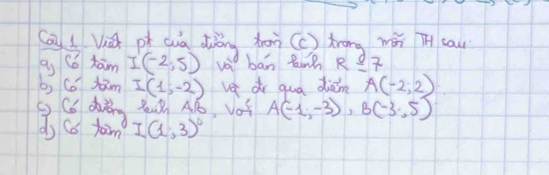 Câu 1 Viết pt của đường tròn (C) trong mỗi TH sau
a) Có tâm I(-2,5) và bán kính R = 7
b) Có tâm I(1,-2) và đi qua điểm A(-2,2)
c) Có đường kính AB, với A(-1,-3), B(-3,5)
d) Có tâm I(1,3)